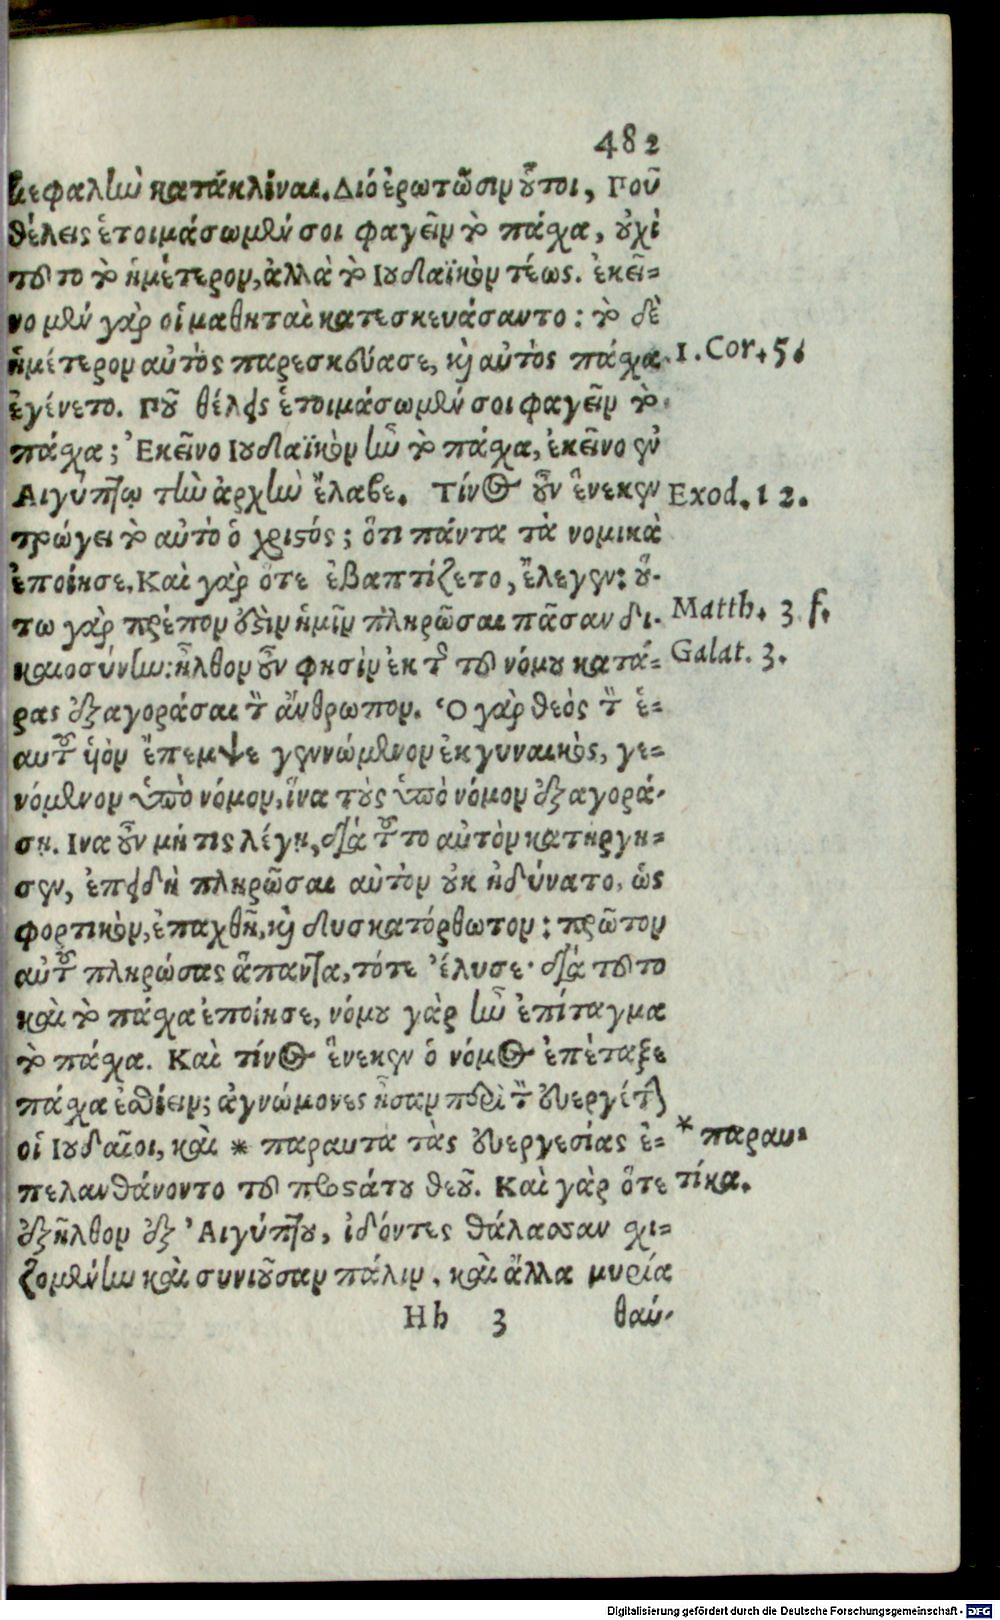 482
κεφαλὴν κατάκλιναι. Διὸ ἐρωτῶσιν οὗτοι, Ποῦ
θέλεις ἑτοιμάσωμέν σοι φαγεῖν τὸ πάσχα, οὐχὶ
τοῦτο τὸ ἡμέτερον, ἀλλὰ τὸ Ιουδαϊκὸν τέως. ἐκεῖ-
νο μὲν γὰρ οἱ μαθηταὶ κατεσκευάσαντο: τὸ δὲ
ἡμέτερον αὐτὸς παρεσκεύασε, καὶ αὐτὸς πάσχα
1. Cor. 5.
ἐγίνετο. Ποῦ θέλεις ἑτοιμάσωμέν σοι φαγεῖν τὸ
πάσχα; Ἐκεῖνο Ιουδαϊκὸν ἦν τὸ πάσχα, ἐκεῖνο ἐν
Αιγύπτῳ τὴν ἀρχὴν ἔλαβε. Τίνος οὖν ἕνεκεν
Exod. 12.
τρώγει τὸ αὐτὸ ὁ χριστός; ὅτι πάντα τὰ νομικὰ
ἐποίησε. Καὶ γὰρ ὅτε ἐβαπτίζετο, ἔλεγεν: οὕ-
τω γὰρ πρέπον ἐστὶν ἡμῖν πληρῶσαι πᾶσαν δι-
Matth. 3. f.
καιοσύνην: ἦλθον οὖν φησὶν ἐκ τῆς τοῦ νόμου κατά-
Galat. 3.
ρας ἐξαγοράσαι τὸν ἄνθρωπον. Ὁ γὰρ θεὸς τὸν ἑ-
αυτοῦ ὑιὸν ἔπεμψε γεννώμενον ἐκ γυναικὸς, γε-
νόμενον ὑπὸ νόμον, ἵνα τοὺς ὑπὸ νόμον ἐξαγορά-
ση. Ινα οὖν μή τις λέγῃ, διὰ τοῦτο αὐτὸν κατήργη-
σεν, ἐπειδὴ πληρῶσαι αὐτὸν οὐκ ἠδύνατο, ὡς
φορτικὸν, ἐπαχθῆ, καὶ δυσκατόρθωτον: πρῶτον
αὐτοῦ πληρώσας ἅπαντα, τότε ἔλυσε· διὰ τοῦτο
καὶ τὸ πάσχα ἐποίησε, νόμου γὰρ ἦν ἐπίταγμα
τὸ πάσχα. Καὶ τίνος ἕνεκεν ὁ νόμος ἐπέταξε
πάσχα ἐσθίειν; ἀγνώμονες ἦσαν περὶ τὸν εὐεργέτην
οἱ Ιουδαῖοι, καὶ * παραυτα τὰς εὐεργεσίας ἐ-
* παραυ-
πελανθάνοντο τοῦ προστάτου θεοῦ. Καὶ γὰρ ὅτε
τίκα.
ἐξῆλθον ἐξ Ἀιγύπτου, ἰδόντες θάλασσαν σχι-
ζομένην καὶ συνιοῦσαν πάλιν, καὶ ἄλλα μυρία
Hh 3 θαύ-
Digitalisierung gefördert durch die Deutsche Forschungsgemeinschaft - DFG